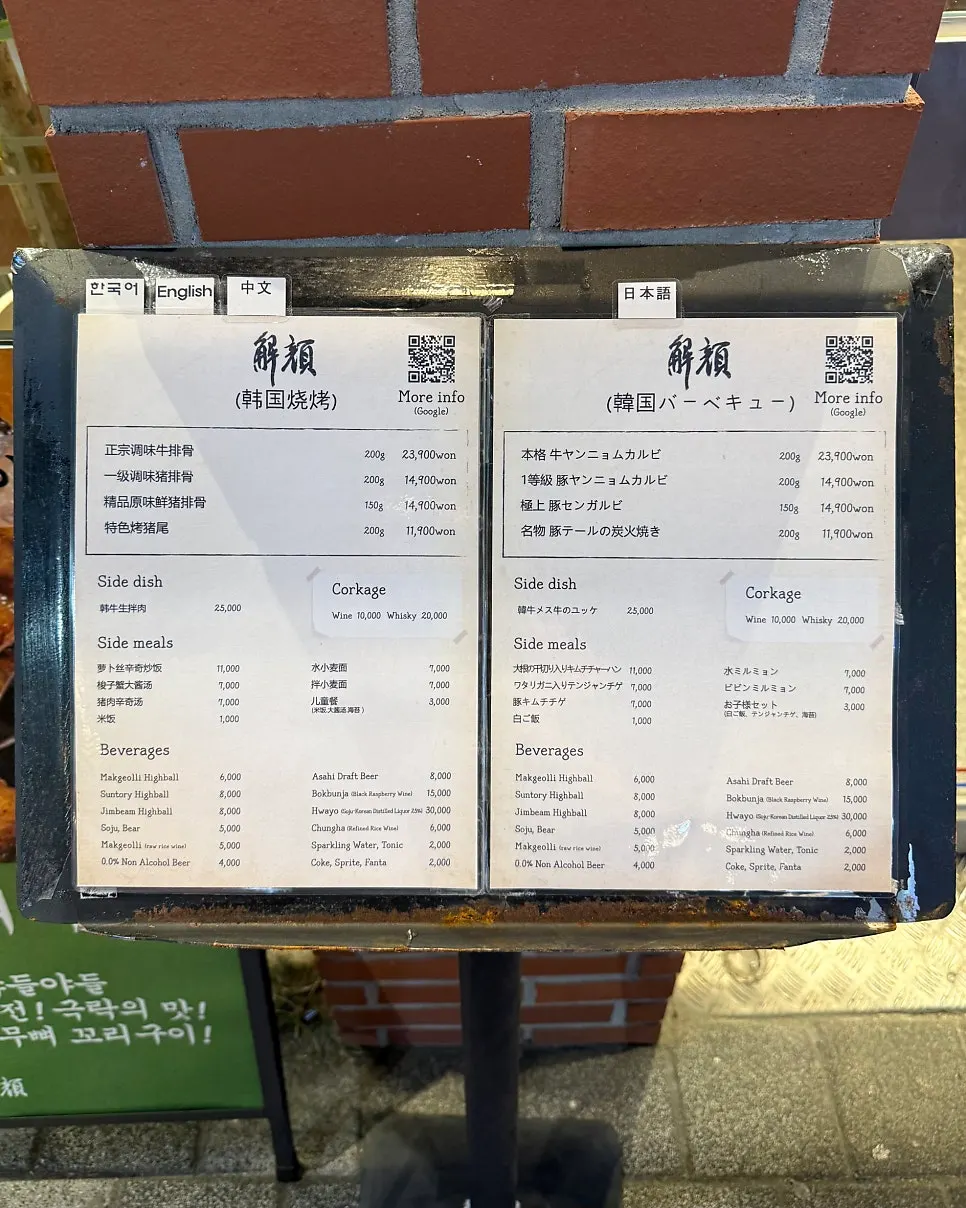 한국어
English
中文
日本語
解顔
(韩国烧烤)
More info
(Google)
正宗调味牛排骨 200g 23,900won
一级调味猪排骨 200g 14,900won
精品原味鲜猪排骨 150g 14,900won
特色烤猪尾 200g 11,900won
Side dish
韩牛生拌肉 25,000
Corkage
Wine 10,000 Whisky 20,000
Side meals
萝卜丝辛奇炒饭 11,000 水小麦面 7,000
梭子蟹大酱汤 7,000 拌小麦面 7,000
猪肉辛奇汤 7,000 儿童餐 3,000
(米饭,大酱汤,海苔)
米饭 1,000
Beverages
Makgeolli Highball 6,000 Asahi Draft Beer 8,000
Suntory Highball 8,000 Bokbunja (Black Raspberry Wine) 15,000
Jimbeam Highball 8,000 Hwayo (Soju-Korean Distilled Liquor 25%) 30,000
Soju, Bear 5,000 Chungha (Refined Rice Wine) 6,000
Makgeolli (raw rice wine) 5,000 Sparkling Water, Tonic 2,000
0.0% Non Alcohol Beer 4,000 Coke, Sprite, Fanta 2,000
解顔
(韓国バーベキュー)
More info
(Google)
本格 牛ヤンニョムカルビ 200g 23,900won
1等級 豚ヤンニョムカルビ 200g 14,900won
極上 豚センガルビ 150g 14,900won
名物 豚テールの炭火焼き 200g 11,900won
Side dish
韓牛メス牛のユッケ 25,000
Corkage
Wine 10,000 Whisky 20,000
Side meals
大根の千切り入りキムチチャーハン 11,000 水ミルミョン 7,000
ワタリガニ入りテンジャンチゲ 7,000 ビビンミルミョン 7,000
豚キムチチゲ 7,000 お子様セット 3,000
(白ご飯、テンジャンチゲ、海苔)
白ご飯 1,000
Beverages
Makgeolli Highball 6,000 Asahi Draft Beer 8,000
Suntory Highball 8,000 Bokbunja (Black Raspberry Wine) 15,000
Jimbeam Highball 8,000 Hwayo (Soju-Korean Distilled Liquor 25%) 30,000
Soju, Bear 5,000 Chungha (Refined Rice Wine) 6,000
Makgeolli (raw rice wine) 5,000 Sparkling Water, Tonic 2,000
0.0% Non Alcohol Beer 4,000 Coke, Sprite, Fanta 2,000
들야들
전! 극락의 맛!
무뼈 꼬리구이!
顔